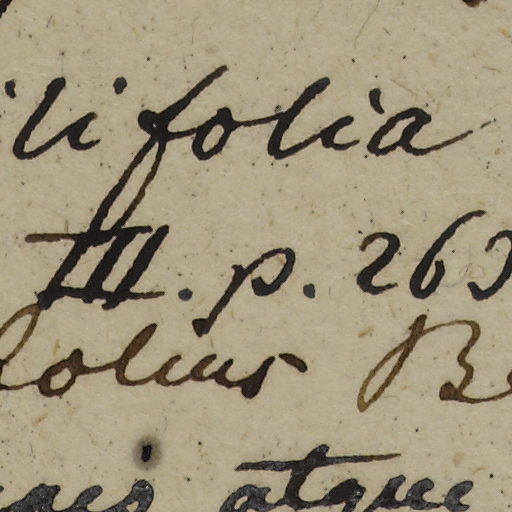 ilifolia
III. p. 263
folius B
atque